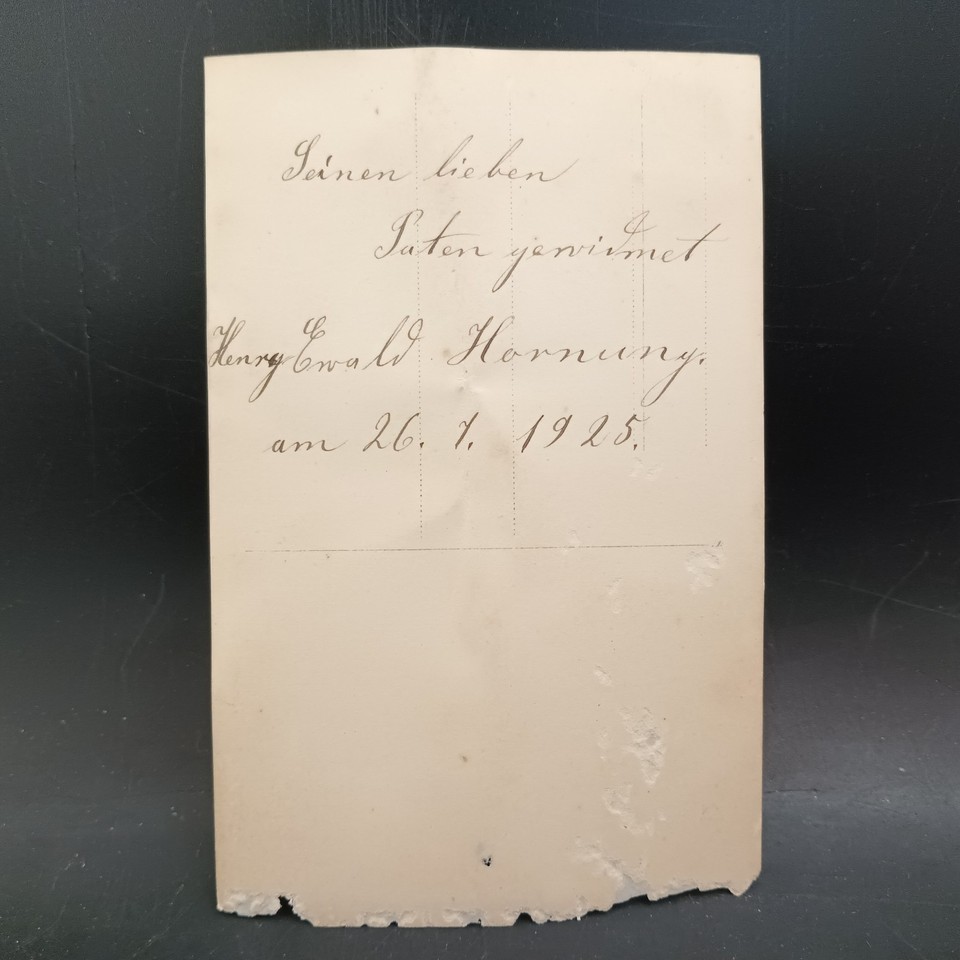 Seinen lieben
Paten gewidmet
Henry Ewald Hornung.
am 26. 7. 1925.